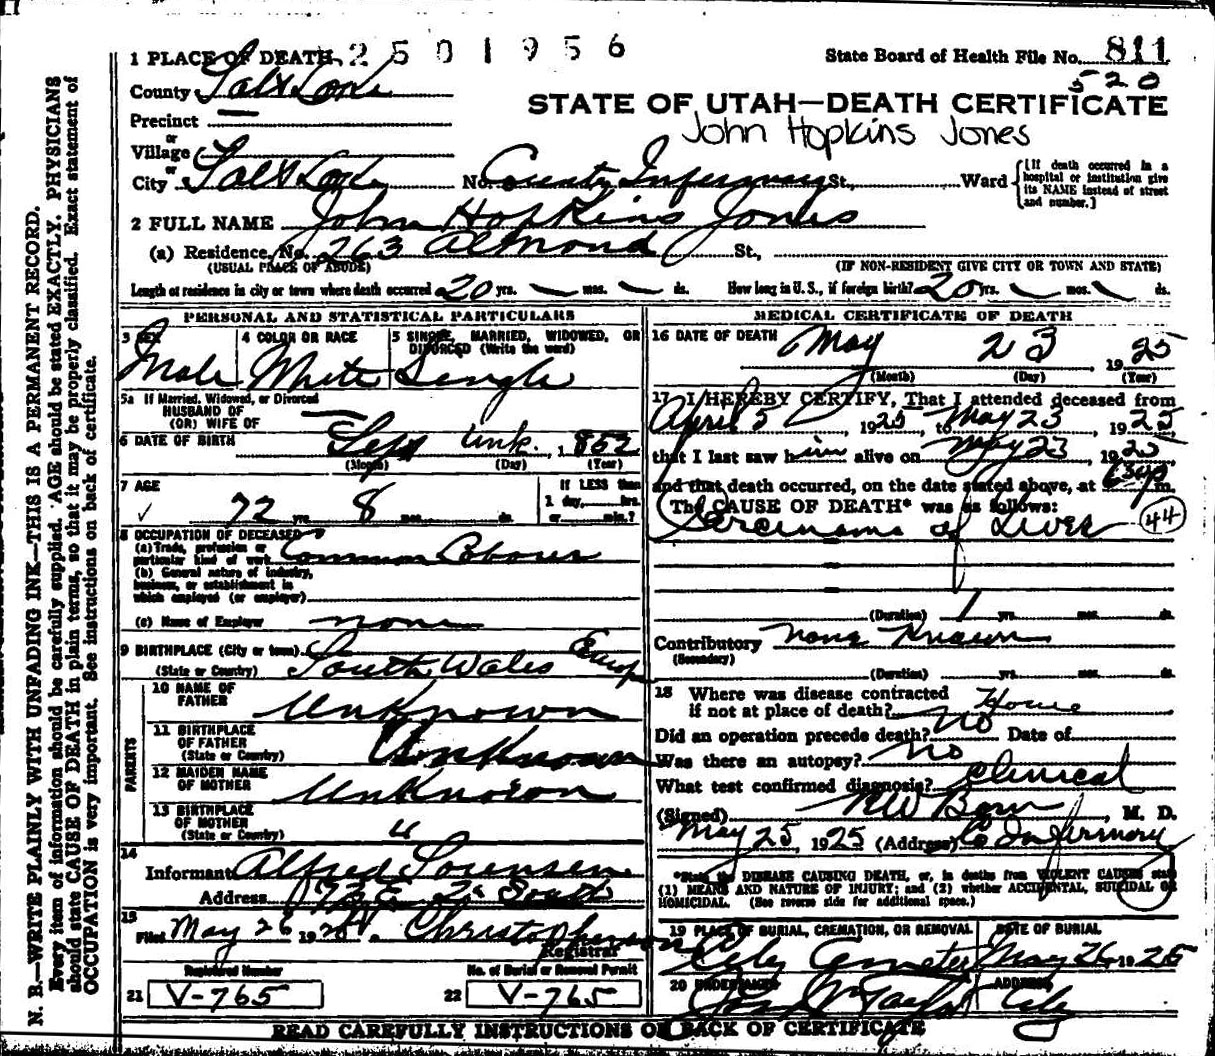 1 PLACE OF DEATH 2501956
State Board of Health File No. 811
520
County Salt Lake
STATE OF UTAH—DEATH CERTIFICATE
Precinct
John Hopkins Jones
or
Village
or
City Salt Lake No. County Infirmary St., Ward
[If death occurred in a
hospital or institution give
its NAME instead of street
and number.]
2 FULL NAME John Hopkins Jones
(a) Residence, No. 263 Almond St.,
(USUAL PLACE OF ABODE) (IF NON-RESIDENT GIVE CITY OR TOWN AND STATE)
Length of residence in city or town where death occurred 20 yrs. — mos. — ds. How long in U. S., if foreign birth? 20 yrs. — mos. — ds.
PERSONAL AND STATISTICAL PARTICULARS
3 SEX
Male
4 COLOR OR RACE
White
5 SINGLE, MARRIED, WIDOWED, OR
DIVORCED (Write the word)
Single
5a If Married, Widowed, or Divorced
HUSBAND OF
(OR) WIFE OF
6 DATE OF BIRTH Sept Unk. 1852
(Month) (Day) (Year)
7 AGE
72 yrs. 8 mos. ds.
If LESS than
1 day, hrs.
or min.?
8 OCCUPATION OF DECEASED
(a) Trade, profession or
particular kind of work Common Laborer
(b) General nature of industry,
business, or establishment in
which employed (or employer)
(c) Name of Employer none
9 BIRTHPLACE (City or town)
(State or Country) South Wales
PARENTS
10 NAME OF
FATHER Unknown
11 BIRTHPLACE
OF FATHER
(State or Country) Unknown
12 MAIDEN NAME
OF MOTHER Unknown
13 BIRTHPLACE
OF MOTHER
(State or Country) "
14
Informant Alfred Sorensen
Address 173 E 2 South
15
Filed May 26 1925 Christopherson
Registrar
Registered Number
21 V-765
No. of Burial or Removal Permit
22 V-765
MEDICAL CERTIFICATE OF DEATH
16 DATE OF DEATH May 23 1925
(Month) (Day) (Year)
17 I HEREBY CERTIFY, That I attended deceased from
April 5, 1925, to May 23, 1925
that I last saw him alive on May 23, 1925
and that death occurred, on the date stated above, at m.
The CAUSE OF DEATH* was as follows:
Carcinoma of Liver 44
(Duration) 1 yrs. mos. ds.
Contributory None Known
(Secondary)
(Duration) yrs. mos. ds.
18 Where was disease contracted
if not at place of death? Home
Did an operation precede death? No Date of
Was there an autopsy? No
What test confirmed diagnosis? Clinical
(Signed) M. D.
May 25, 1925 (Address) Co Infirmary
*State the DISEASE CAUSING DEATH, or, in deaths from VIOLENT CAUSES state
(1) MEANS AND NATURE OF INJURY; and (2) whether ACCIDENTAL, SUICIDAL or
HOMICIDAL. (See reverse side for additional space.)
19 PLACE OF BURIAL, CREMATION, OR REMOVAL
City Cemetery
DATE OF BURIAL
May 26 1925
20 UNDERTAKER
Taylor
ADDRESS
City
READ CAREFULLY INSTRUCTIONS ON BACK OF CERTIFICATE
N. B.—WRITE PLAINLY WITH UNFADING INK—THIS IS A PERMANENT RECORD.
Every item of information should be carefully supplied. AGE should be stated EXACTLY. PHYSICIANS
should state CAUSE OF DEATH in plain terms, so that it may be properly classified. Exact statement of
OCCUPATION is very important. See instructions on back of certificate.